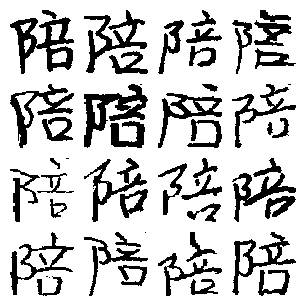 陪陪陪陪
陪陪陪陪
陪陪陪陪
陪陪陪陪